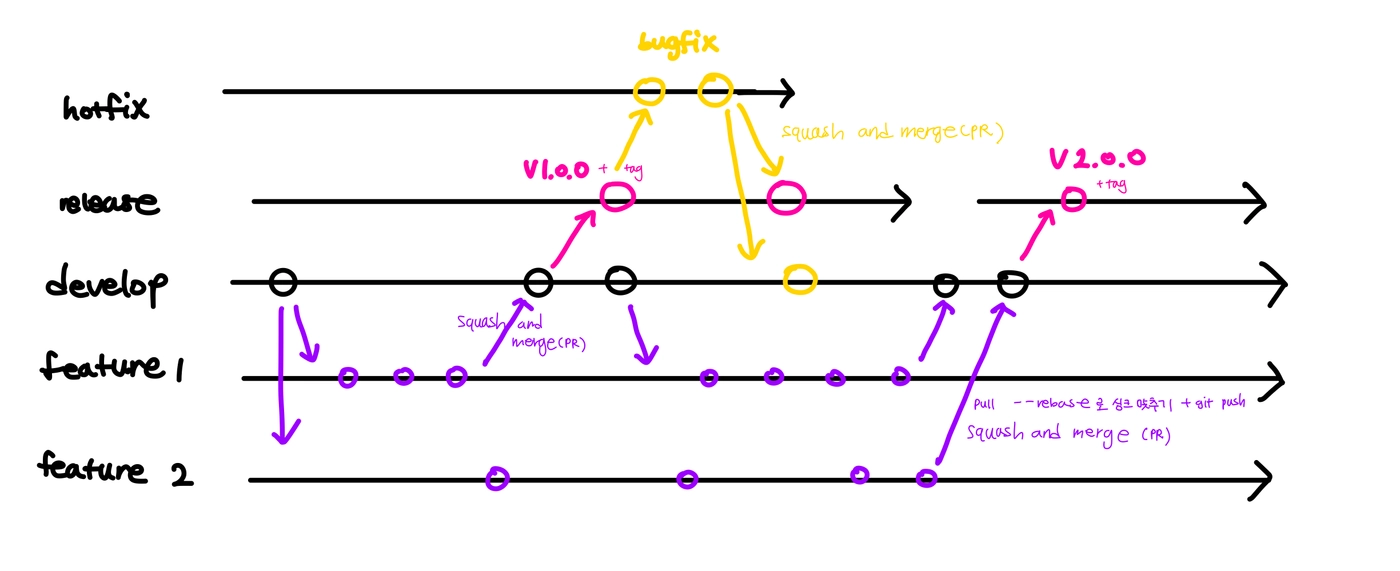 bugfix
hotfix
squash and merge(PR)
V1.0.0 + tag
V2.0.0
+tag
release
develop
Squash and
merge(PR)
feature 1
pull --rebase로 싱크 맞추기 + git push
Squash and merge (PR)
feature 2